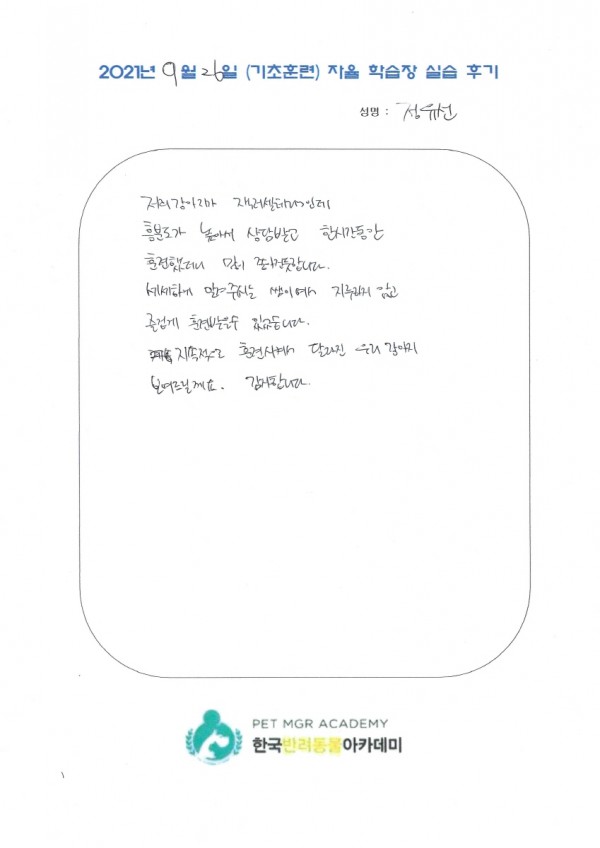 2021년 9월 26일 (기초훈련) 자율 학습장 실습 후기
성명 : 정유선
저희 강아지가 잭러셀테리어인데
흥분도가 높아서 상담받고 한시간동안
훈련했더니 많이 뿌듯합니다.
세세하게 알려주시는 쌤이여서 지루하지 않고
즐겁게 훈련받을수 있었습니다.
지속적으로 훈련시켜서 달라진 우리 강아지
보여드릴께요. 감사합니다.
PET MGR ACADEMY
한국반려동물아카데미